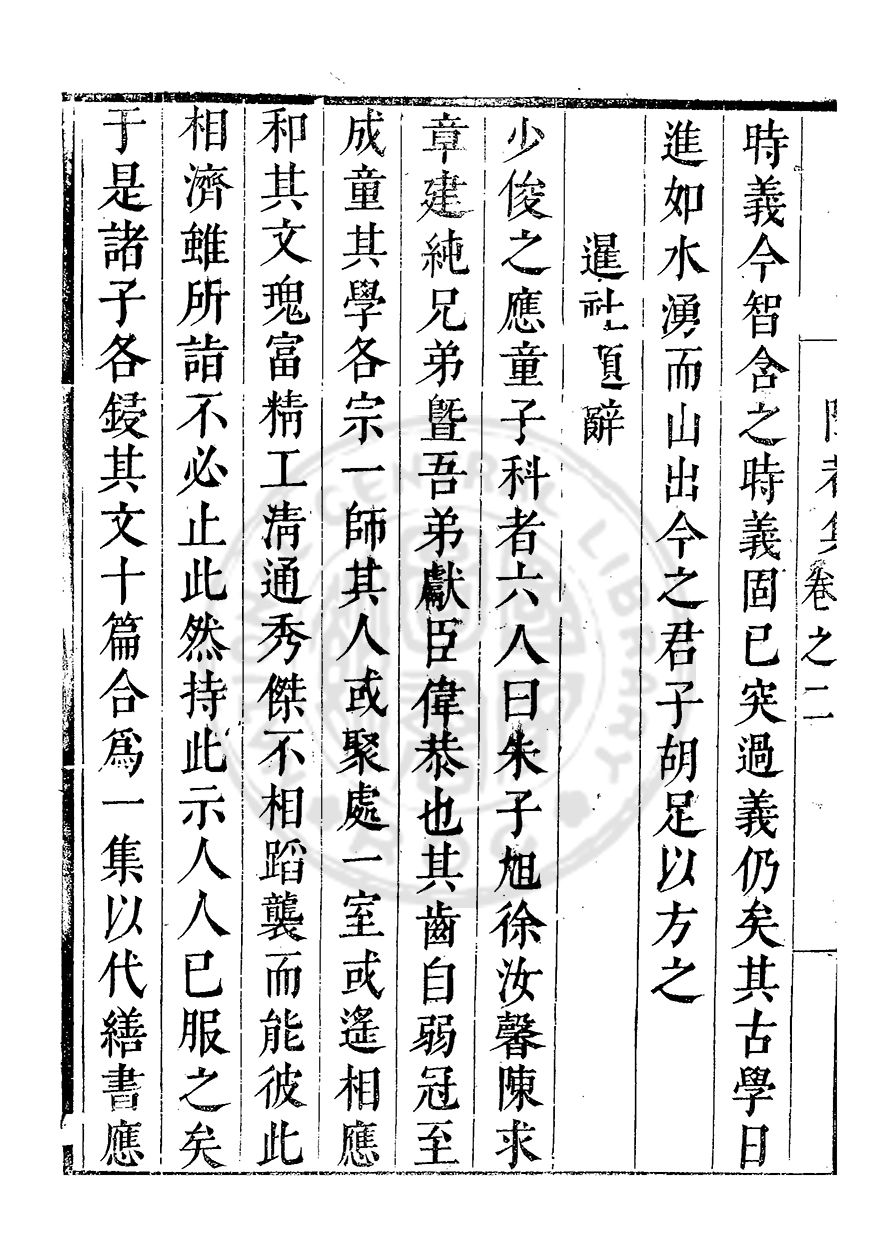 集卷之二
時義今智含之時義固已突過義仍矣其古學日
進如水湧而山出今之君子胡足以方之
暹社題辭
少俊之應童子科者六人曰朱子旭徐汝馨陳求
章建純兄弟曁吾弟獻臣偉恭也其齒自弱冠至
成童其學各宗一師其人或聚處一室或遙相應
和其文瑰富精工淸通秀傑不相蹈襲而能彼此
相濟雖所詣不必止此然持此示人人已服之矣
于是諸子各鋟其文十篇合爲一集以代繕書應
GENERAL LIBRARY